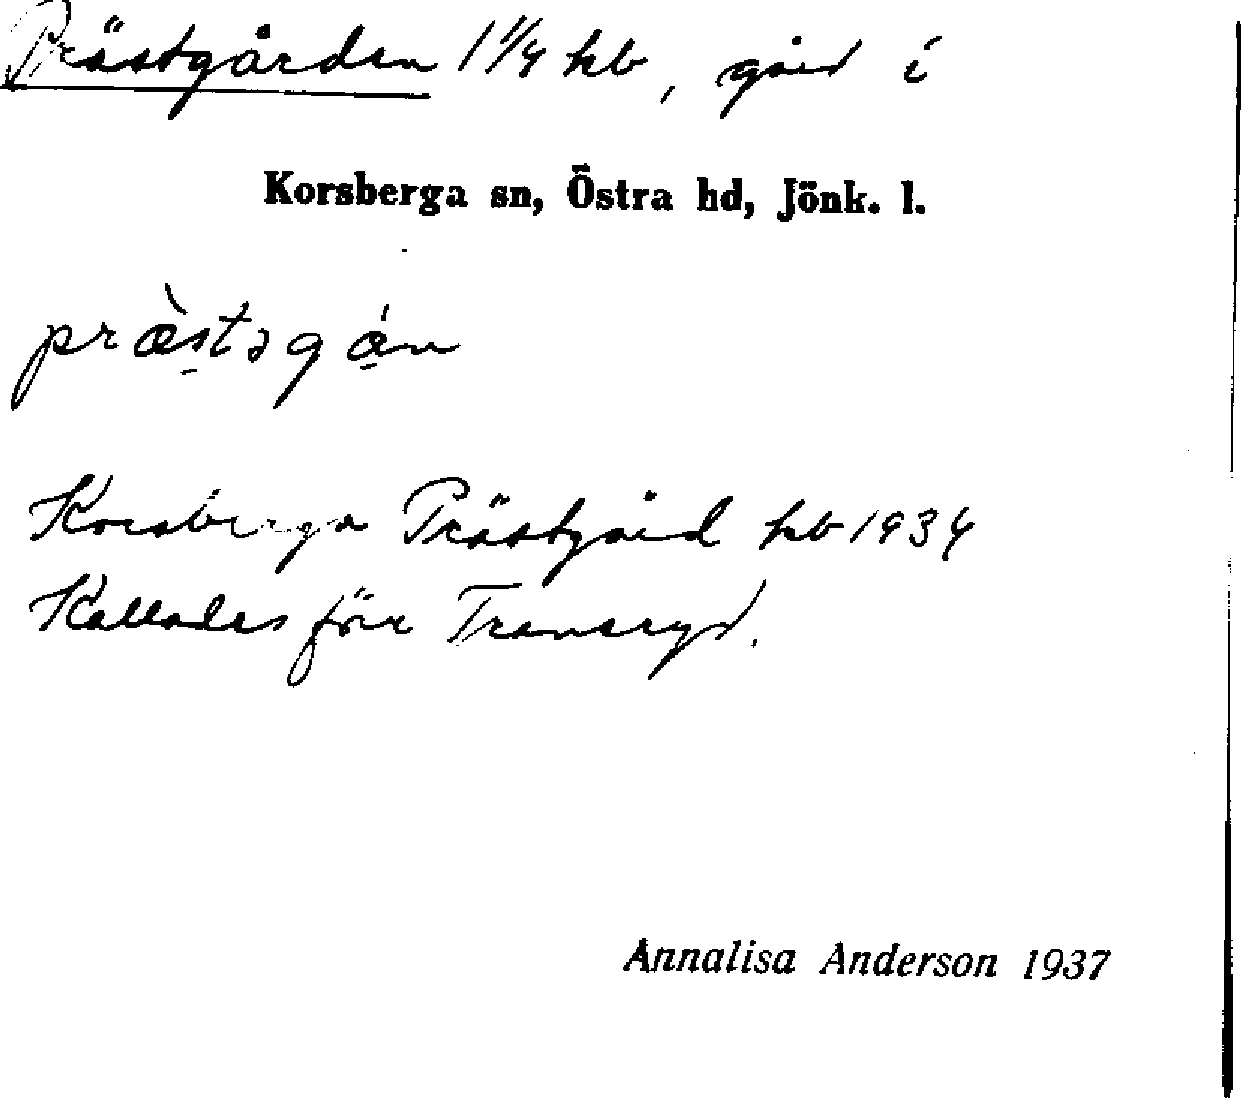 Prästgården 1 1/4 hb, gård i
Korsberga sn, Östra hd, Jönk. l.
præ̀stəgán
Korsberga Prästgård hb 1934
Kallades förr Transryd.
Annalisa Anderson 1937